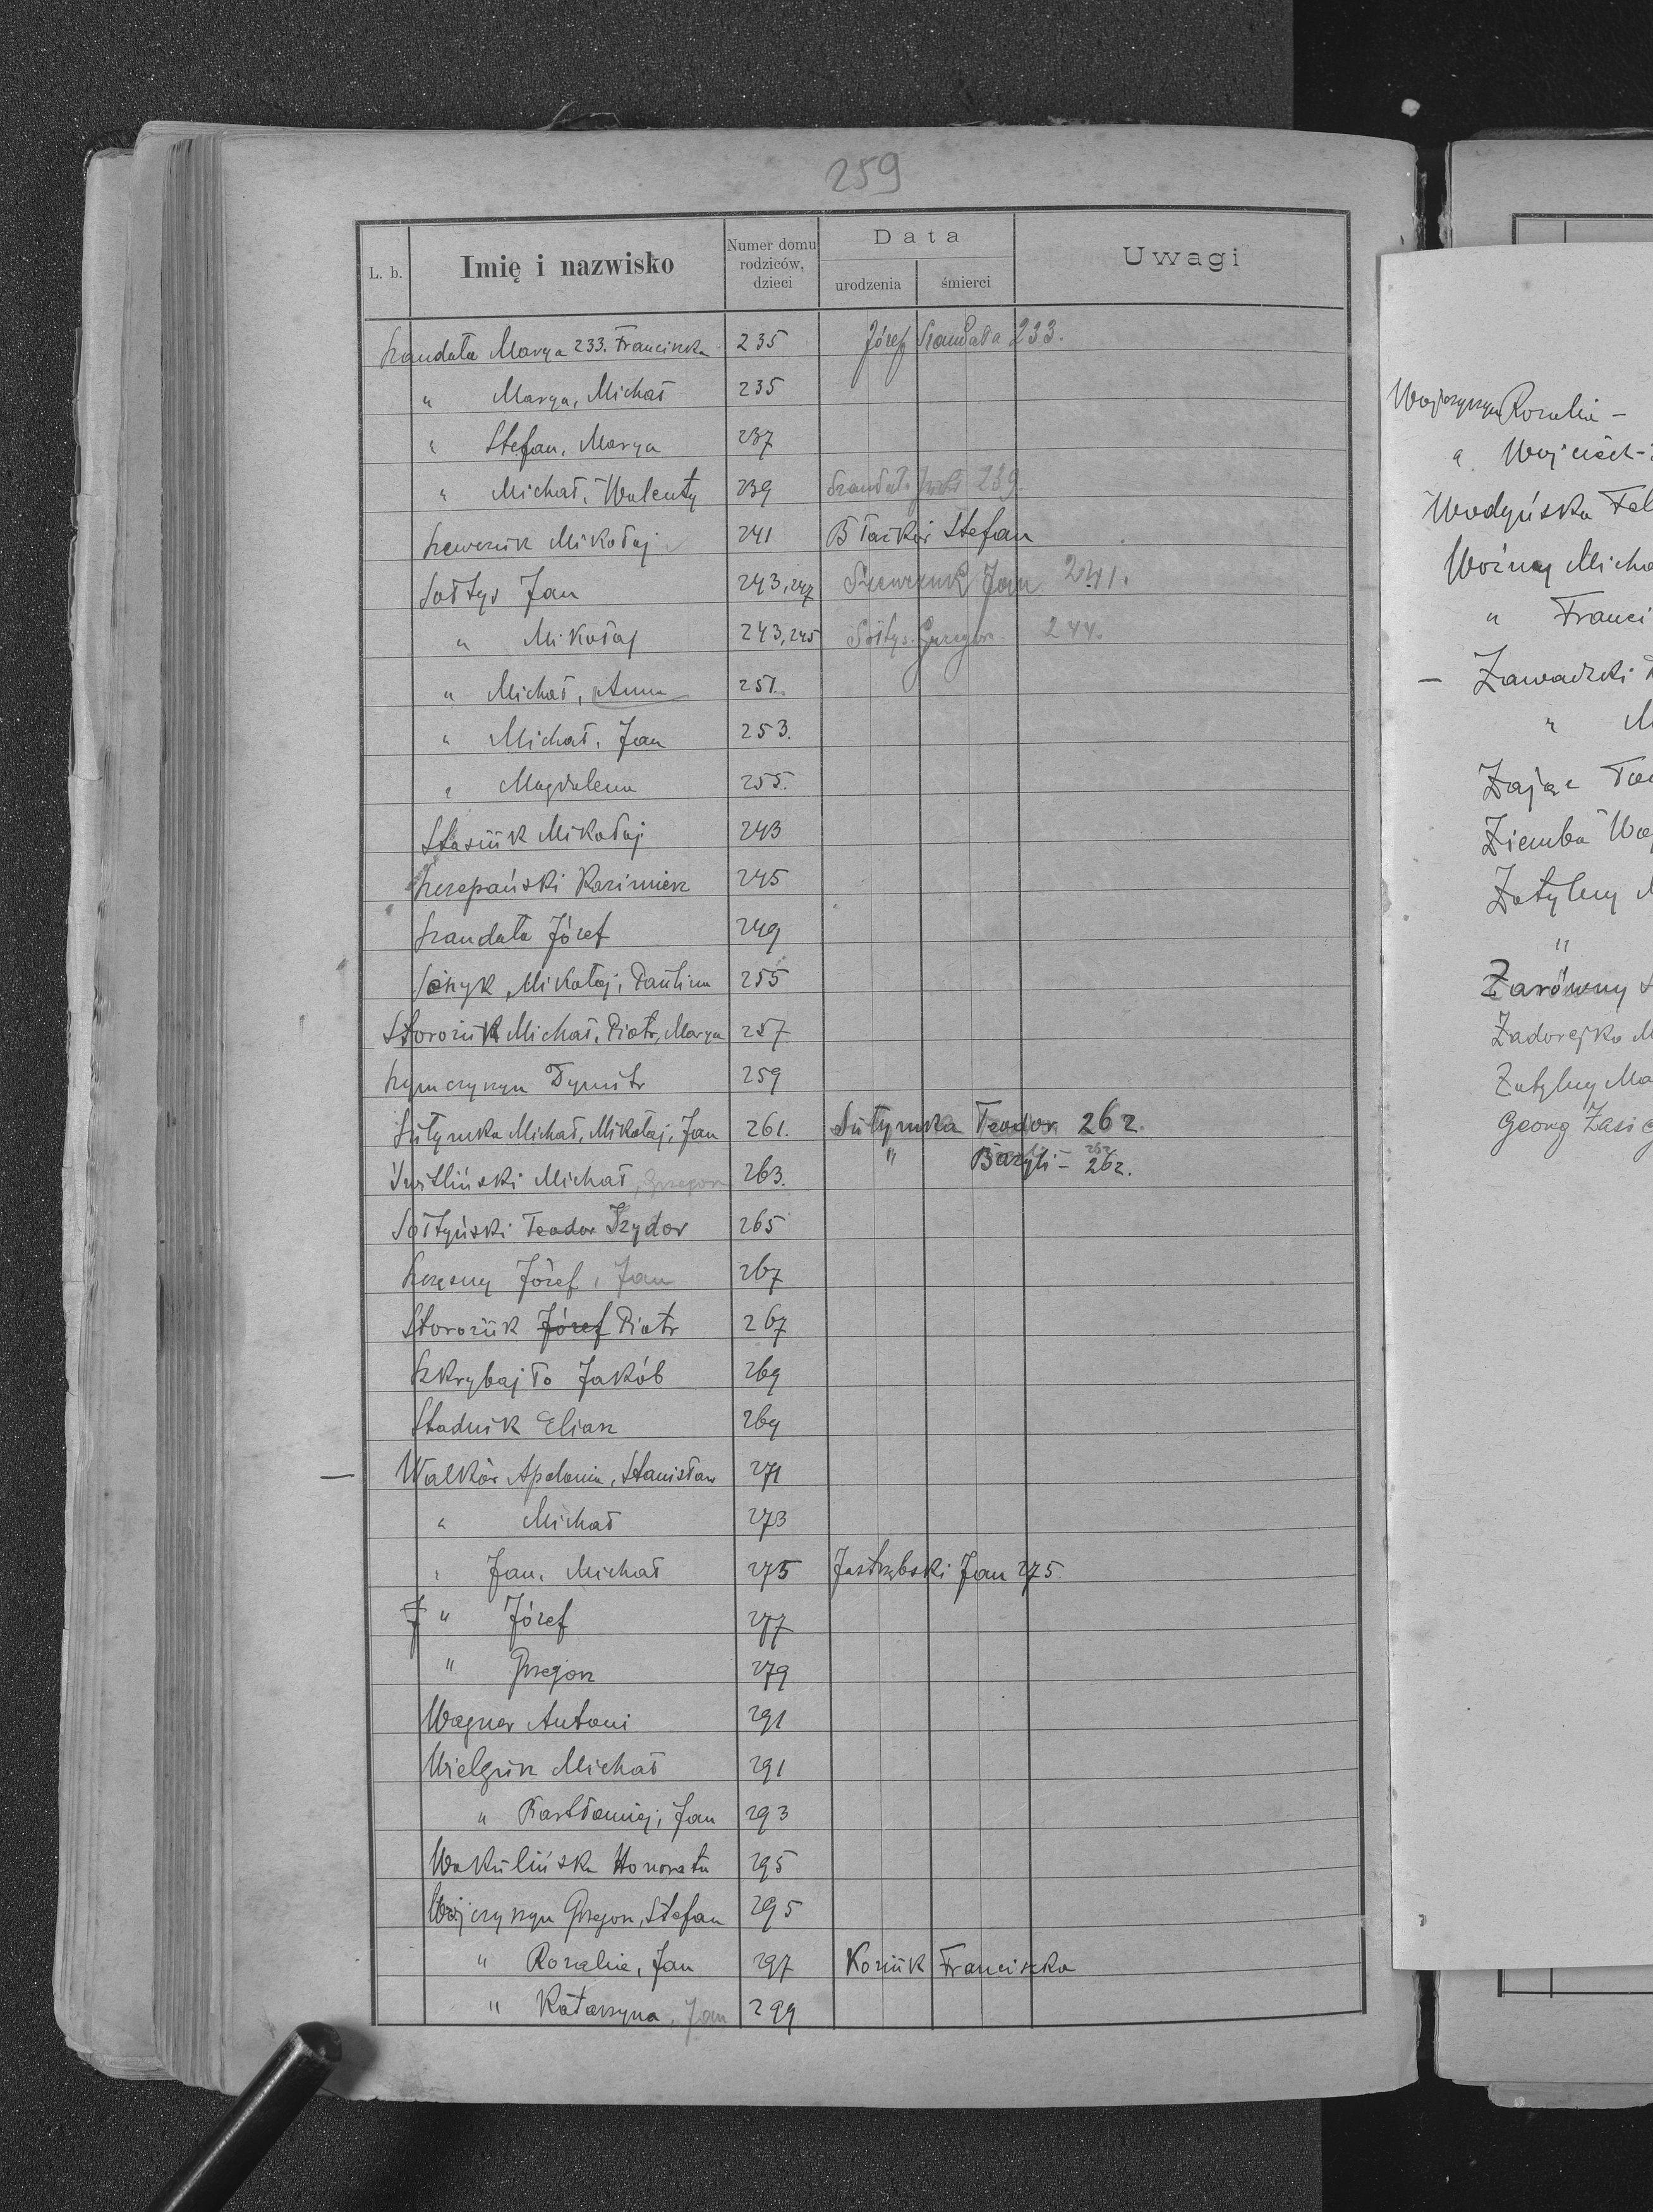 259
L. b. Imię i nazwisko Numer domu rodziców, dzieci Data urodzenia śmierci Uwagi
Szandała Marya 233. Franciszka 235 Józef Szandała 233.
" Marya, Michał 235
" Stefan, Marya 237
" Michał, Walenty 239 Szandała 239.
Szewczuk Mikołaj 241 Błaźków Stefan
Sołtys Jan 243, 247 Szewczuk Jan 241.
" Mikołaj 243, 245 Sołtys Grzegorz 244.
" Michał, Anna 251.
" Michał, Jan 253.
" Magdalena 255.
Stasiuk Mikołaj 243
Szczepański Kazimierz 245
Szandała Józef 249
Mikołaj, Paulina 255
Storożuk Michał, Piotr, Marya 257
Szymczyszyn Dymitr 259
Sutymka Michał, Mikołaj, Jan 261. Sutymka Teodor 262.
Switliński Michał, Grzegorz 263. " Bazyli - 262.
Sołtyński Teodor Izydor 265
Szczęsny Józef, Jan 267
Storożuk Józef Piotr 267
Szkrybajło Jakób 269
Stadnik Eliasz 269
— Walków Apolonia, Stanisław 271
" Michał 273
" Jan, Michał 275 Jastrzębski Jan 275.
" Józef 277
" Grzegorz 279
Wagner Antoni 291
Wielgusz Michał 291
" Bartłomiej, Jan 293
Wakulińska Honorata 295
Wojczyszyn Grzegorz, Stefan 295
" Rozalia, Jan 297 Koziuk Franciszka
" Katarzyna, Jan 299
Wojczyszyn Rozalia -
" Wojciech -
Wodyńska Fel
Woźny Micha
" Franci
— Zawadzki
" M
Zając
Ziemba Woj
Zatylny M
"
Zarówny S
Zadorejko M
Zatylny Ma
Georg